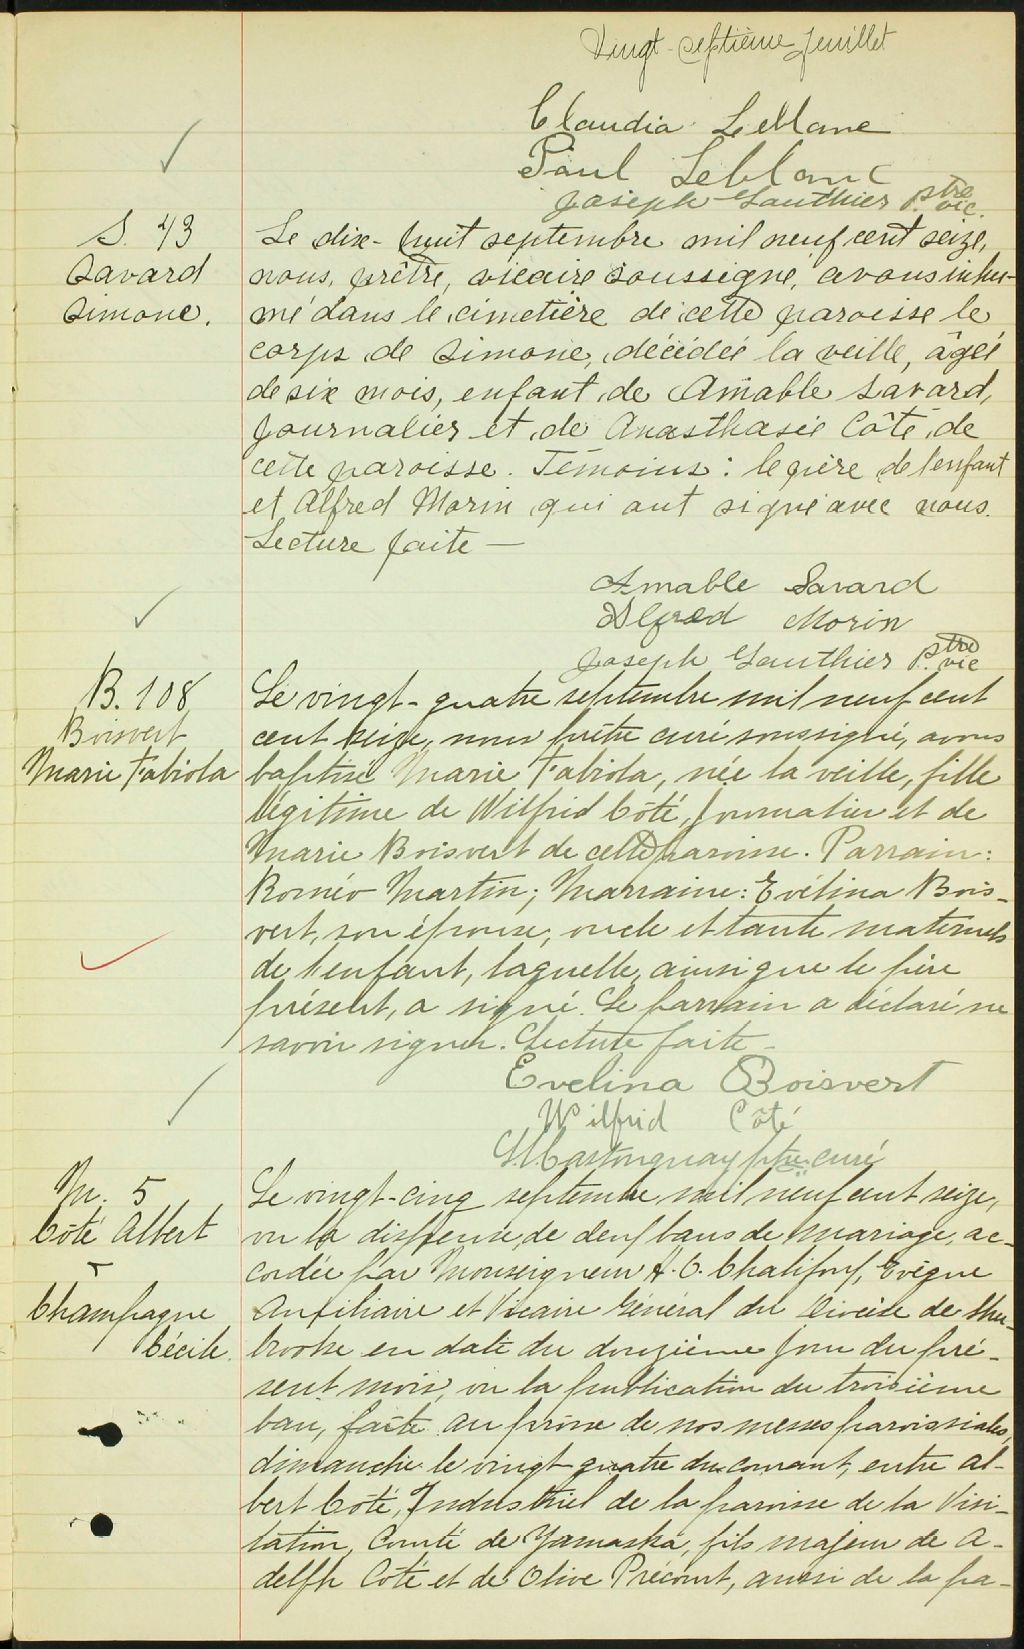 Vingt-septième feuillet
Claudia Leblanc
Paul Leblanc
Joseph Gauthier Ptre vic.
S. 43
Savard
Simone.
Le dix-huit septembre mil neuf cent seize,
nous, prêtre, vicaire soussigné, avons inhu-
mé dans le cimetière de cette paroisse le
corps de Simone, décédée la veille, âgée
de six mois, enfant de Amable Savard,
journalier et de Anasthasie Côté de
cette paroisse. Témoins : le père de l'enfant
et Alfred Morin qui ont signé avec nous.
Lecture faite —
Amable Savard
Alfred Morin
Joseph Gauthier Ptre vic
B. 108
Boisvert
Marie Fabiola
Le vingt-quatre septembre mil neuf cent
cent seize, nous prêtre curé soussigné, avons
baptisé Marie Fabiola, née la veille, fille
légitime de Wilfrid Côté, journalier et de
Marie Boisvert de cette paroisse. Parrain :
Roméo Martin ; Marraine : Evélina Bois-
vert, son épouse, oncle et tante maternels
de l'enfant, laquelle, ainsi que le père
présent, a signé. Le parrain a déclaré ne
savoir signer. Lecture faite -
Evelina Boisvert
Wilfrid Côté
Castonguay ptre curé
M. 5
Côté Albert
+
Champagne
Cécile.
Le vingt-cinq septembre mil neuf cent seize,
vu la dispense de deux bans de mariage, ac-
cordée par Monseigneur H. O. Chalifoux, Evêque
Auxiliaire et Vicaire Général du Diocèse de Sher-
brooke en date du douzième jour du pré-
sent mois, vu la publication du troisième
ban, faite au prône de nos messes paroissiales,
dimanche le vingt-quatre du courant, entre Al-
bert Côté, Industriel de la paroisse de la Visi-
tation, Comté de Yamaska, fils majeur de A-
delph Coté et de Olive Précourt, aussi de la pa-